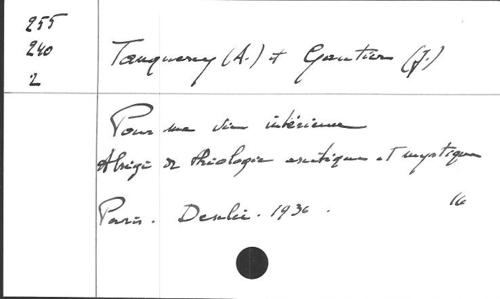 255
240
2
Tanquerey (A.) et Gautier (J.)
Pour ma vie intérieure
Abrégé de théologie ascétique et mystique
Paris. Desclée. 1936. 16